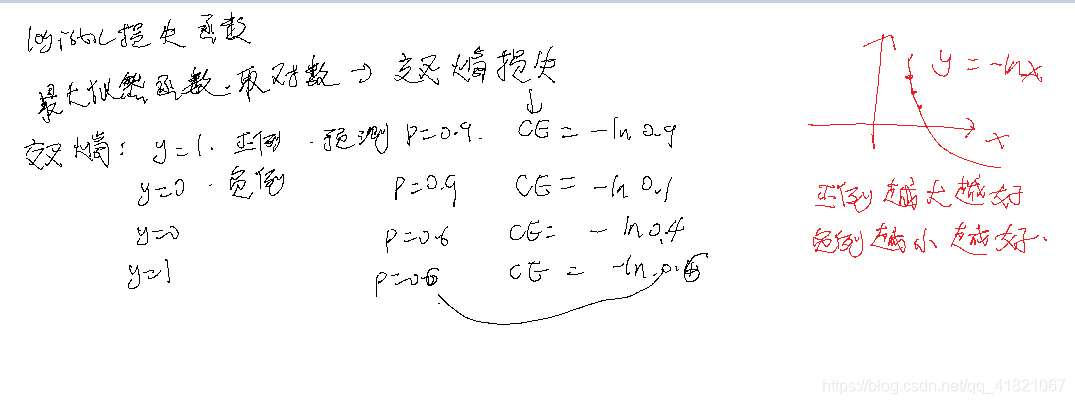 logistic损失函数
最大似然函数.取对数→交叉熵损失
↓
交叉熵: y=1. 正例.预测 P=0.9. CE = -ln 0.9
y=0.负例 P=0.9 CE = -ln 0.1
y=0 P=0.6 CE = -ln 0.4
y=1 P=0.6 CE = -ln 0.6
y = -lnx
x
正例越大越好
负例越小越好.
https://blog.csdn.net/qq_41821067